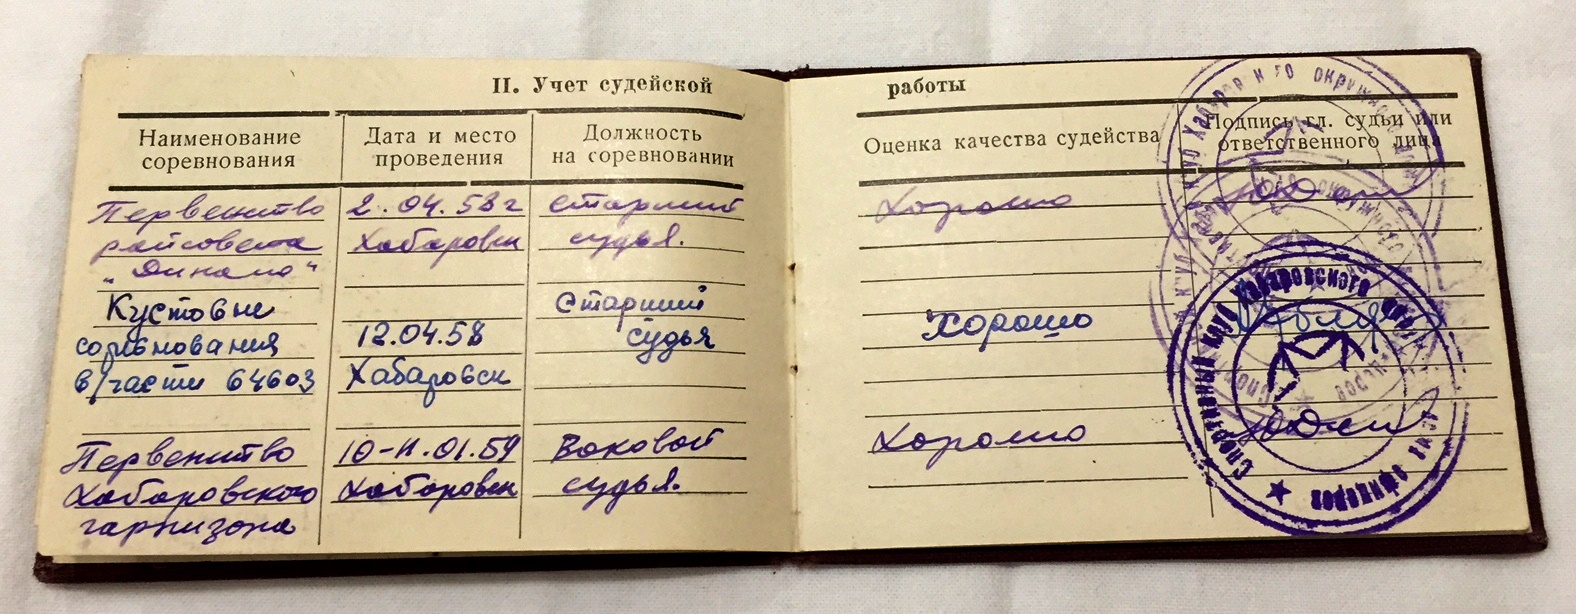 II. Учет судейской работы
Наименование соревнования
Дата и место проведения
Должность на соревновании
Оценка качества судейства
Подпись гл. судьи или ответственного лица
Первенство
райсовета
„Динамо“
2.04.58г
Хабаровск
старший
судья.
Хорошо
Кустовые
соривнования
в/части 64603
12.04.58
Хабаровск
Старший
судья
Хорошо
Первенство
Хабаровского
гарнизона
10-11.01.59
Хабаровск
Боковой
судья.
Хорошо
Спортивный клуб Хабаровского